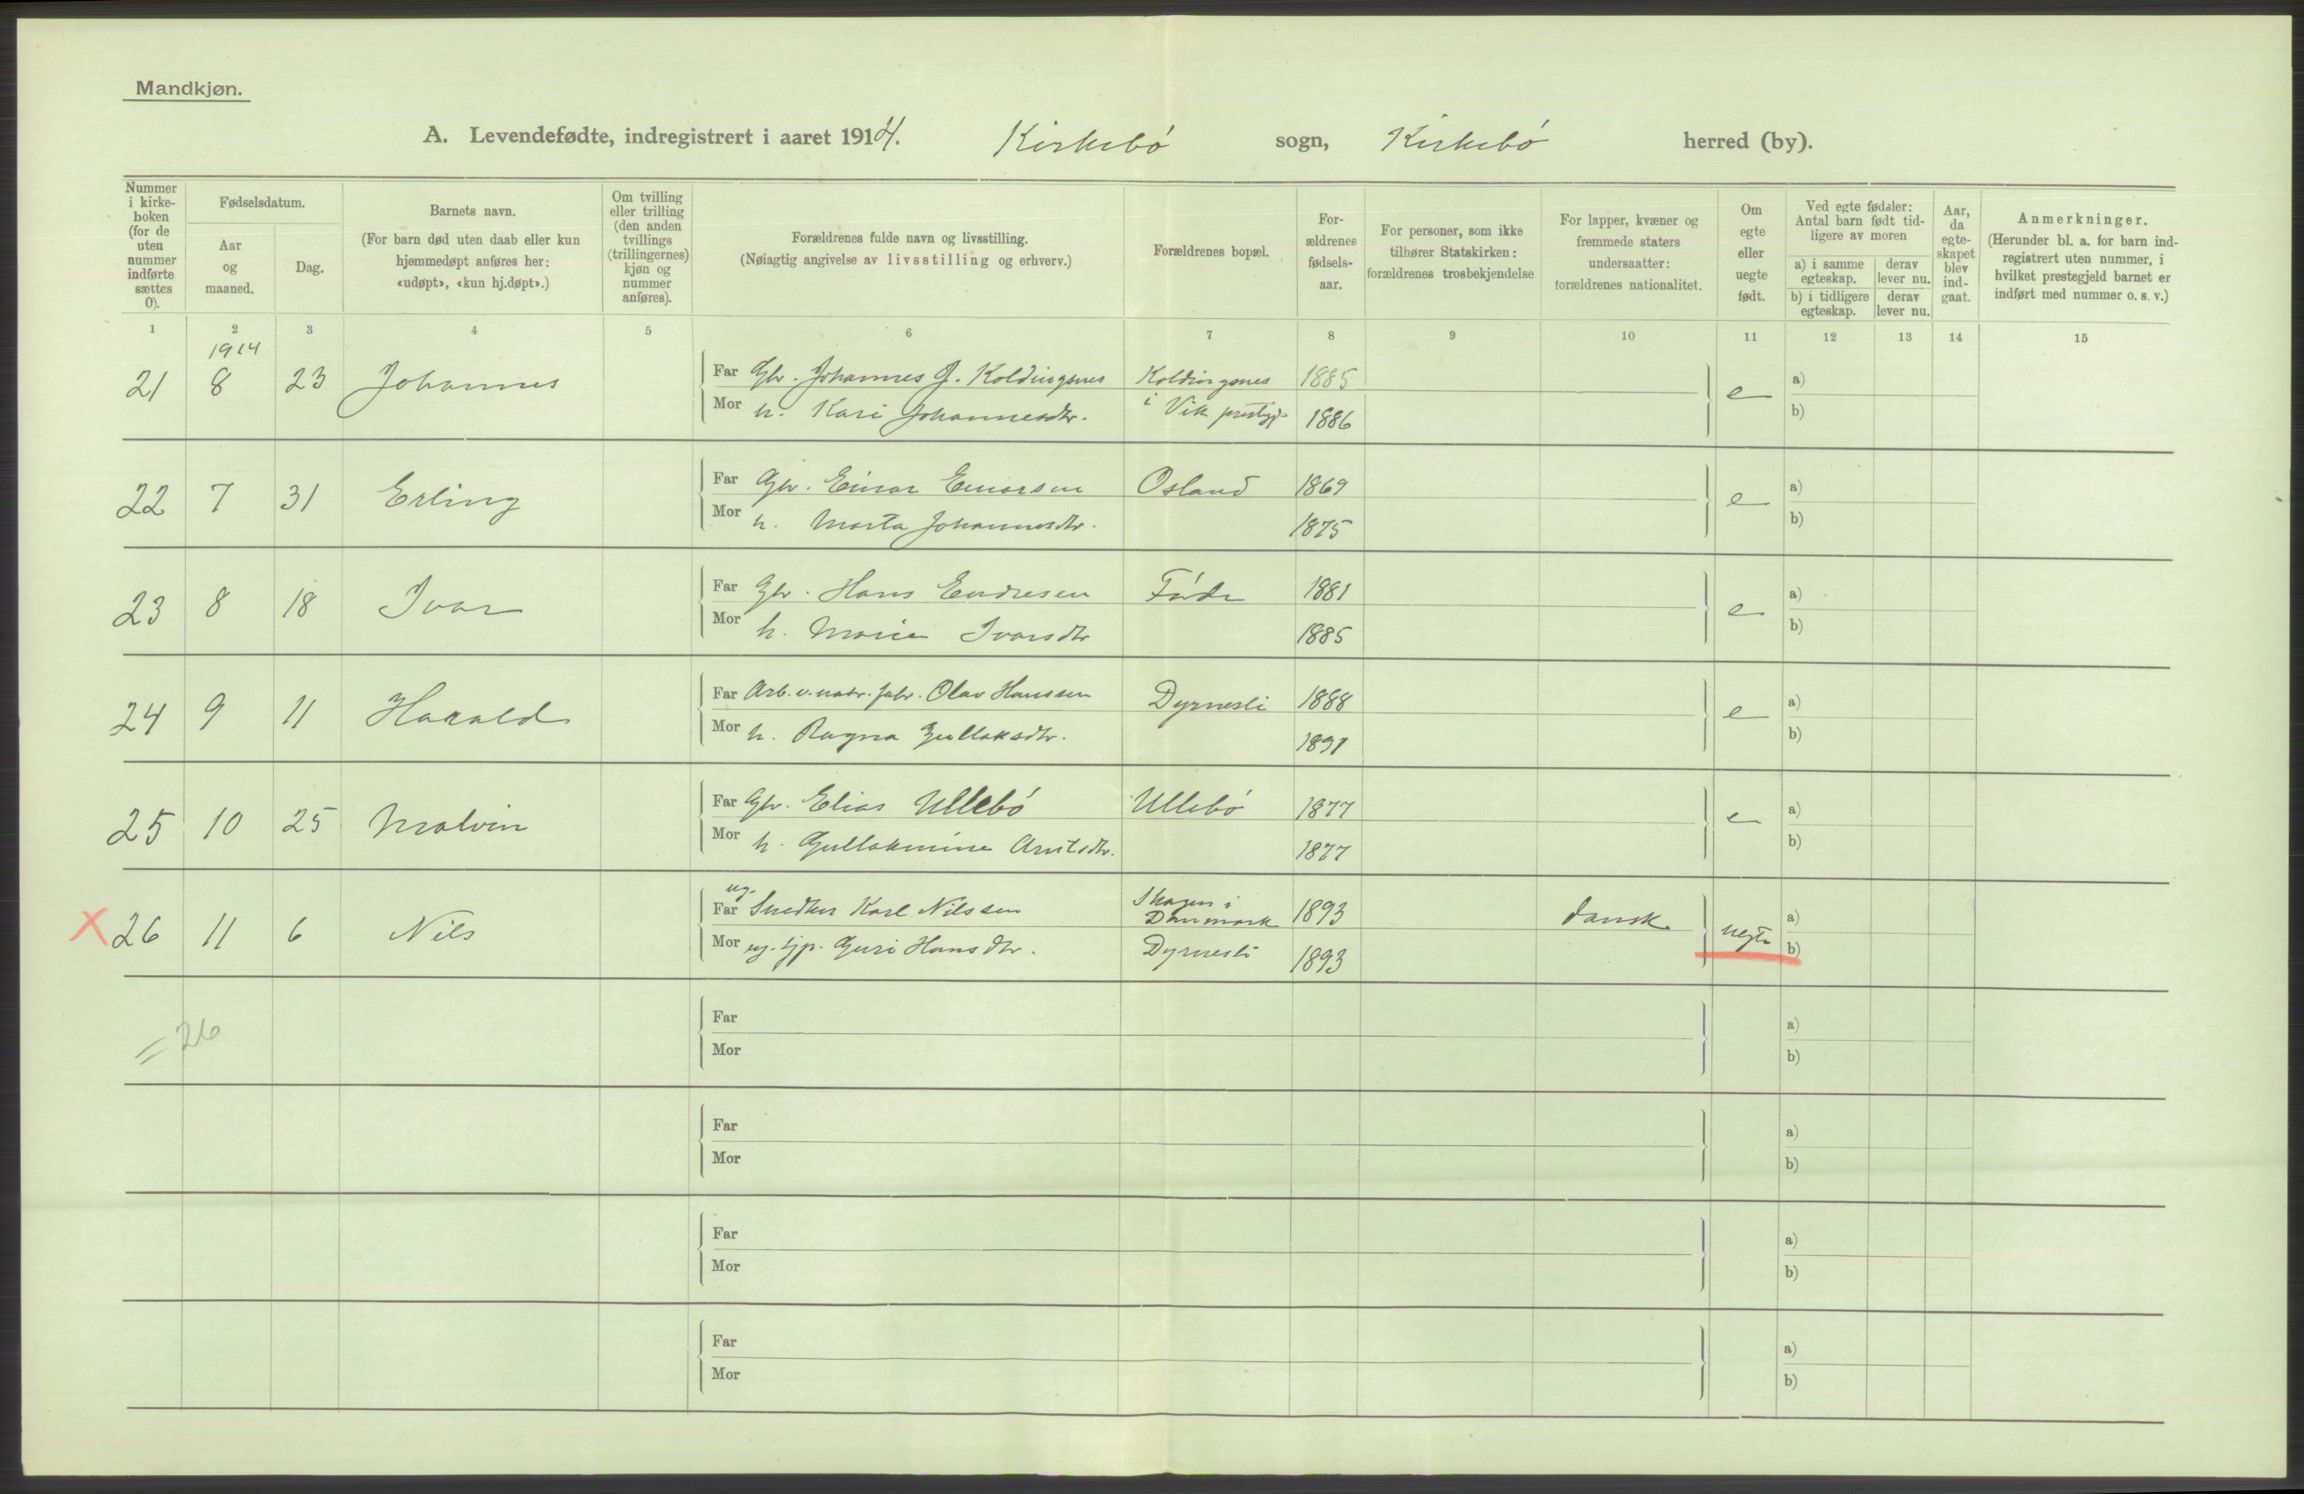 Mandkjøn.
A. Levendefødte, indregistrert i aaret 1914. Kirkebö sogn, Kirkebö herred (by).
Nummer i kirke-boken (for de uten nummer indførte sættes 0).
Fødselsdatum.
Aar og maaned.
Dag.
Barnets navn.
(For barn død uten daab eller kun hjemmedøpt anføres her: «udøpt», «kun hj.døpt».)
Om tvilling eller trilling (den anden tvillings (trillingernes) kjøn og nummer anføres).
Forældrenes fulde navn og livsstilling.
(Nøiagtig angivelse av livsstilling og erhverv.)
Forældrenes bopæl.
For-ældrenes fødsels-aar.
For personer, som ikke tilhører Statskirken: forældrenes trosbekjendelse
For lapper, kvæner og fremmede staters undersaatter: forældrenes nationalitet.
Om egte eller uegte født.
Ved egte fødsler: Antal barn født tid-ligere av moren
a) i samme egteskap.
derav lever nu.
b) i tidligere egteskap.
derav lever nu.
Aar, da egte-skapet blev ind-gaat.
Anmerkninger.
(Herunder bl. a. for barn ind-registrert uten nummer, i hvilket prestegjeld barnet er indført med nummer o. s. v.)
1 2 3 4 5 6 7 8 9 10 11 12 13 14 15
1914
21 8 23 Johannes Far Gbr. Johannes J. Koldingsnes Koldingsnes 1885 e a)
Mor h. Kari Johannesdtr. i Vik prestgj. 1886 b)
22 7 31 Erling Far Gbr. Einar Einarsen Osland 1869 e a)
Mor h. Marta Johannesdtr. 1875 b)
23 8 18 Ivar Far Gbr. Hans Endresen Förde 1881 e a)
Mor h. Marie Ivarsdtr 1885 b)
24 9 11 Harald Far Arb. v. fabr. Olav Hanssen Dyrnesli 1888 e a)
Mor h. Ragna Gullaksdtr. 1891 b)
25 10 25 Malvin Far Gbr. Elias Ullebö Ullebö 1877 e a)
Mor h. Gullakmine Arntsdtr. 1877 b)
X 26 11 6 Nils Far ug. Snedker Karl Nilssen Skagen i Danmark 1893 dansk uegte a)
Mor ug. tjp. Guri Hansdtr. Dyrnesli 1893 b)
= 26
Far a)
Mor b)
Far a)
Mor b)
Far a)
Mor b)
Far a)
Mor b)